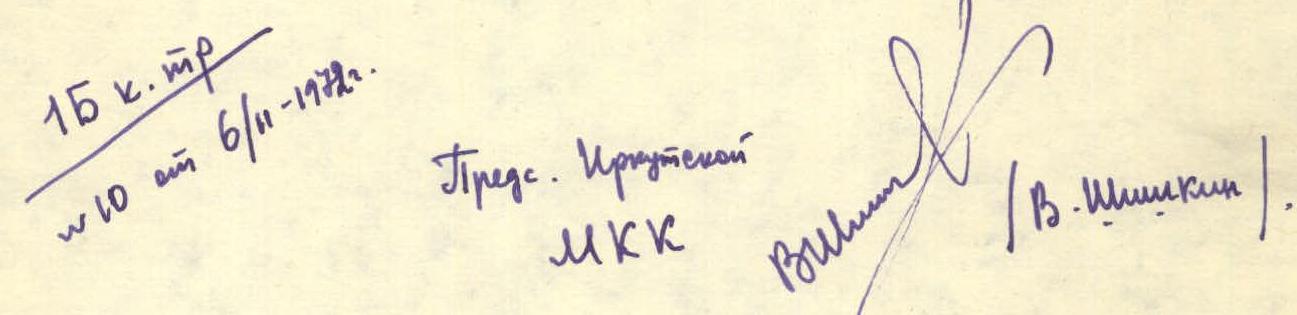 1Б к. тр
№ 10 от 6/II-1972г.
Предс. Иркутской
МКК
ВШиш
/В. Шишкин/.